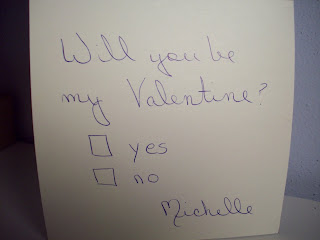 Will you be
my Valentine?
yes
no
Michelle